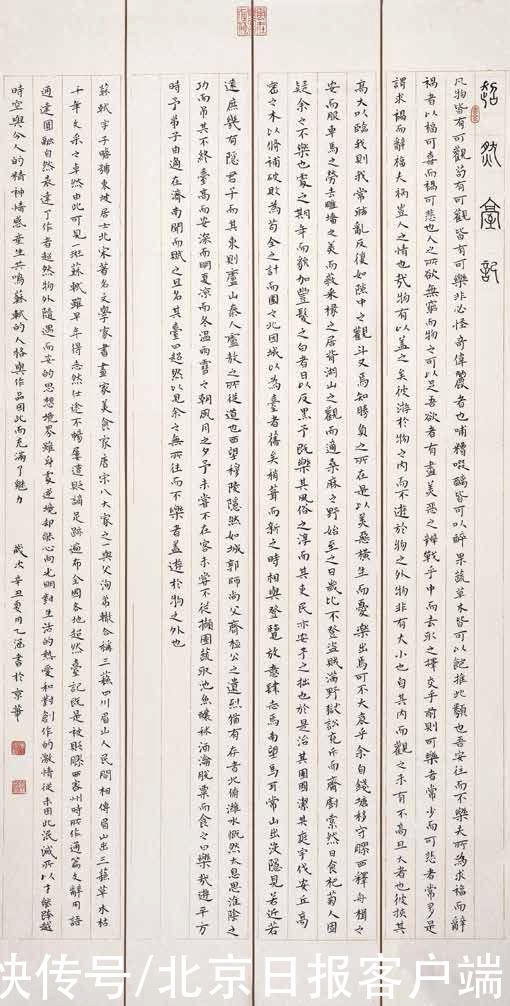 超然臺記
凡物皆有可觀苟有可觀皆有可樂非必怪奇偉麗者也哺糟啜醨皆可以醉果蔬草木皆可以飽推此類也吾安往而不樂夫所為求福而辭
禍者以福可喜而禍可悲也人之所欲無窮而物之可以足吾欲者有盡美惡之辨戰乎中而去取之擇交乎前則可樂者常少而可悲者常多是
謂求禍而辭福夫禍豈人之情也哉物有以蓋之矣彼游於物之內而不遊於物之外物非有大小也自其內而觀之未有不高且大者也彼挾其
高大以臨我則我常眩亂反復如隙中之觀斗又焉知勝負之所在是以美惡橫生而憂樂出焉可不大哀乎余自錢塘移守膠西釋舟楫之
安而服車馬之勞去雕墻之美而蔽采椽之居背湖山之觀而適桑麻之野始至之日歲比不登盜賊滿野獄訟充斥而齋廚索然日食杞菊人固
疑余之不樂也處之期年而貌加豐髮之白者日以反黑予既樂其風俗之淳而其吏民亦安予之拙也於是治其園圃潔其庭宇伐安丘高
密之木以修補破敗為苟全之計而園之北因城以為臺者舊矣稍葺而新之時相與登覽放意肆志焉南望馬耳常山出沒隱見若近若
遠庶幾有隱君子乎而其東則廬山秦人盧敖之所從遁也西望穆陵隱然如城郭師尚父齊桓公之遺烈猶有存者北俯濰水慨然太息思淮陰之
功而弔其不終臺高而安深而明夏涼而冬溫雨雪之朝風月之夕予未嘗不在客未嘗不從擷園蔬取池魚釀秫酒瀹脫粟而食之曰樂哉遊乎方
時予弟子由適在濟南聞而賦之且名其臺曰超然以見余之無所往而不樂者蓋遊於物之外也
蘇軾字子瞻號東坡居士北宋著名文學家書畫家美食家唐宋八大家之一與父洵弟轍合稱三蘇四川眉山人民間相傳眉山出三蘇草木枯
十年文采之卓然由此可見一斑蘇軾雖早年得志然仕途不暢屢遭貶謫足跡遍布全國各地超然臺記既是被貶膠西密州時所作通篇文辭用語
通達圓融自然表達了作者超然物外隨遇而安的思想境界雖身處逆境卻能心向光明對生活的熱愛和對創作的激情從未因此泯滅所以才能跨越
時空與今人的精神情感產生共鳴蘇軾的人格與作品因此而充滿了魅力
歲次辛丑夏月乙涵書於京華
快传号/北京日报客户端